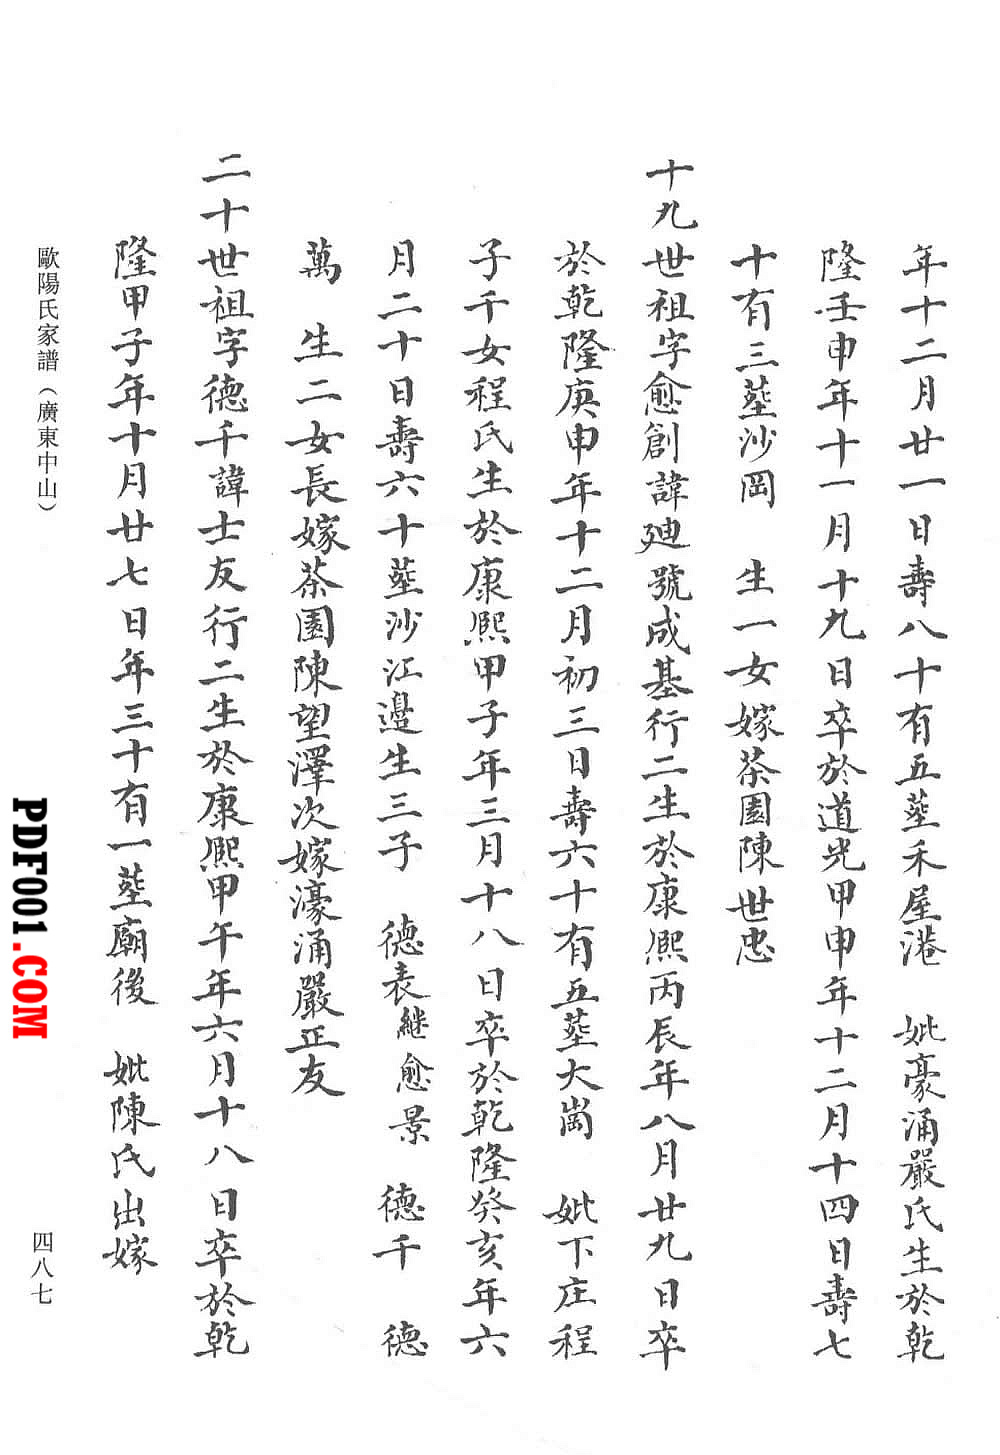 年十二月廿一日壽八十有五塟禾屋港　妣豪涌嚴氏生於乾
隆壬申年十一月十九日卒於道光甲申年十二月十四日壽七
十有三塟沙岡　生一女嫁茶園陳世忠
十九世祖字愈創諱廸號成基行二生於康熙丙辰年八月廿九日卒
於乾隆庚申年十二月初三日壽六十有五塟大崗　妣下庄程
子千女程氏生於康熙甲子年三月十八日卒於乾隆癸亥年六
月二十日壽六十塟沙江邊生三子　德表繼愈景　德千　德
萬　生二女長嫁茶園陳望澤次嫁濠涌嚴正友
二十世祖字德千諱士友行二生於康熙甲午年六月十八日卒於乾
隆甲子年十月廿七日年三十有一塟廟後　妣陳氏出嫁
歐陽氏家譜（廣東中山）
四八七
PDF001.COM